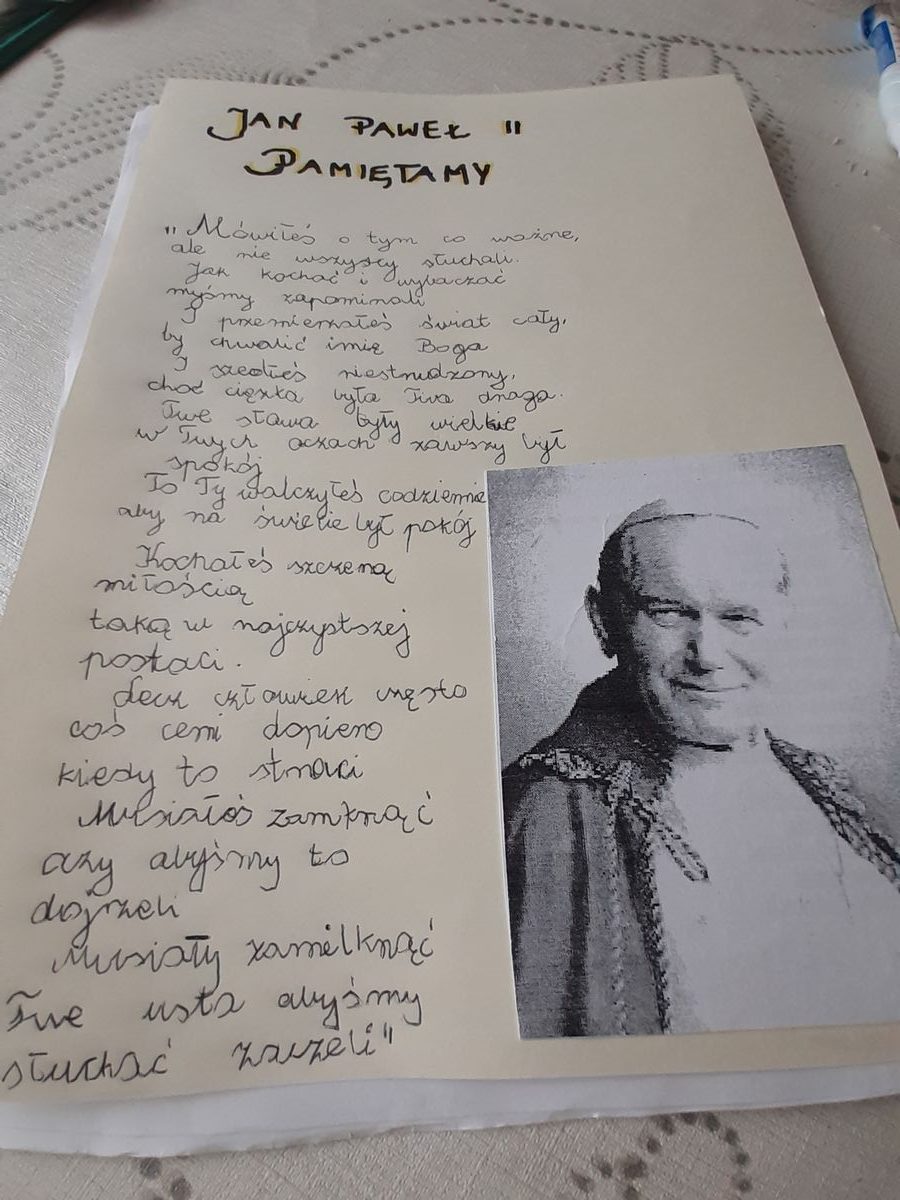 JAN PAWEŁ II
PAMIĘTAMY
"Mówiłeś o tym co ważne,
ale nie wszyscy słuchali.
Jak kochać i wybaczać
myśmy zapominali
I przemierzałeś świat cały,
by chwalić imię Boga
I szedłeś niestrudzony,
choć ciężka była Twa droga.
Twe słowa były wielkie
w Twych oczach zawszy był
spokój
To Ty walczyłeś codziennie
aby na świecie był pokój
Kochałeś szczerą
miłością
taką w najczystszej
postaci.
Lecz człowiek często
coś ceni dopiero
kiedy to straci
Musiałeś zamknąć
oczy abyśmy to
dojrzeli
Musiały zamilknąć
Twe usta abyśmy
słuchać zaczeli"